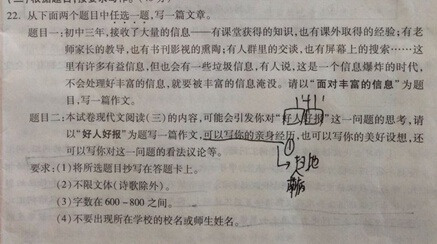 22. 从下面两个题目中任选一题，写一篇文章。
题目一：初中三年，接收了大量的信息——有课堂获得的知识，也有课外取得的经验；有老
师家长的教导，也有书刊影视的熏陶；有人群里的交谈，也有屏幕上的搜索……这
里有许多有益信息，但也会有一些垃圾信息，有人说，这是一个信息爆炸的时代，
不会处理好丰富的信息，就要被丰富的信息淹没。请以“面对丰富的信息”为题
目，写一篇作文。
题目二：本试卷现代文阅读（三）的内容，可能会引发你对“好人好报”这一问题的思考，请
以“好人好报”为题写一篇作文，可以写你的亲身经历，也可以写你的美好设想，还
可以写你对这一问题的看法议论等。
①
扫地
要求：(1)将所选题目抄写在答题卡上。
(2)不限文体(诗歌除外)。
(3)字数在600-800之间。
(4)不要出现所在学校的校名或师生姓名。